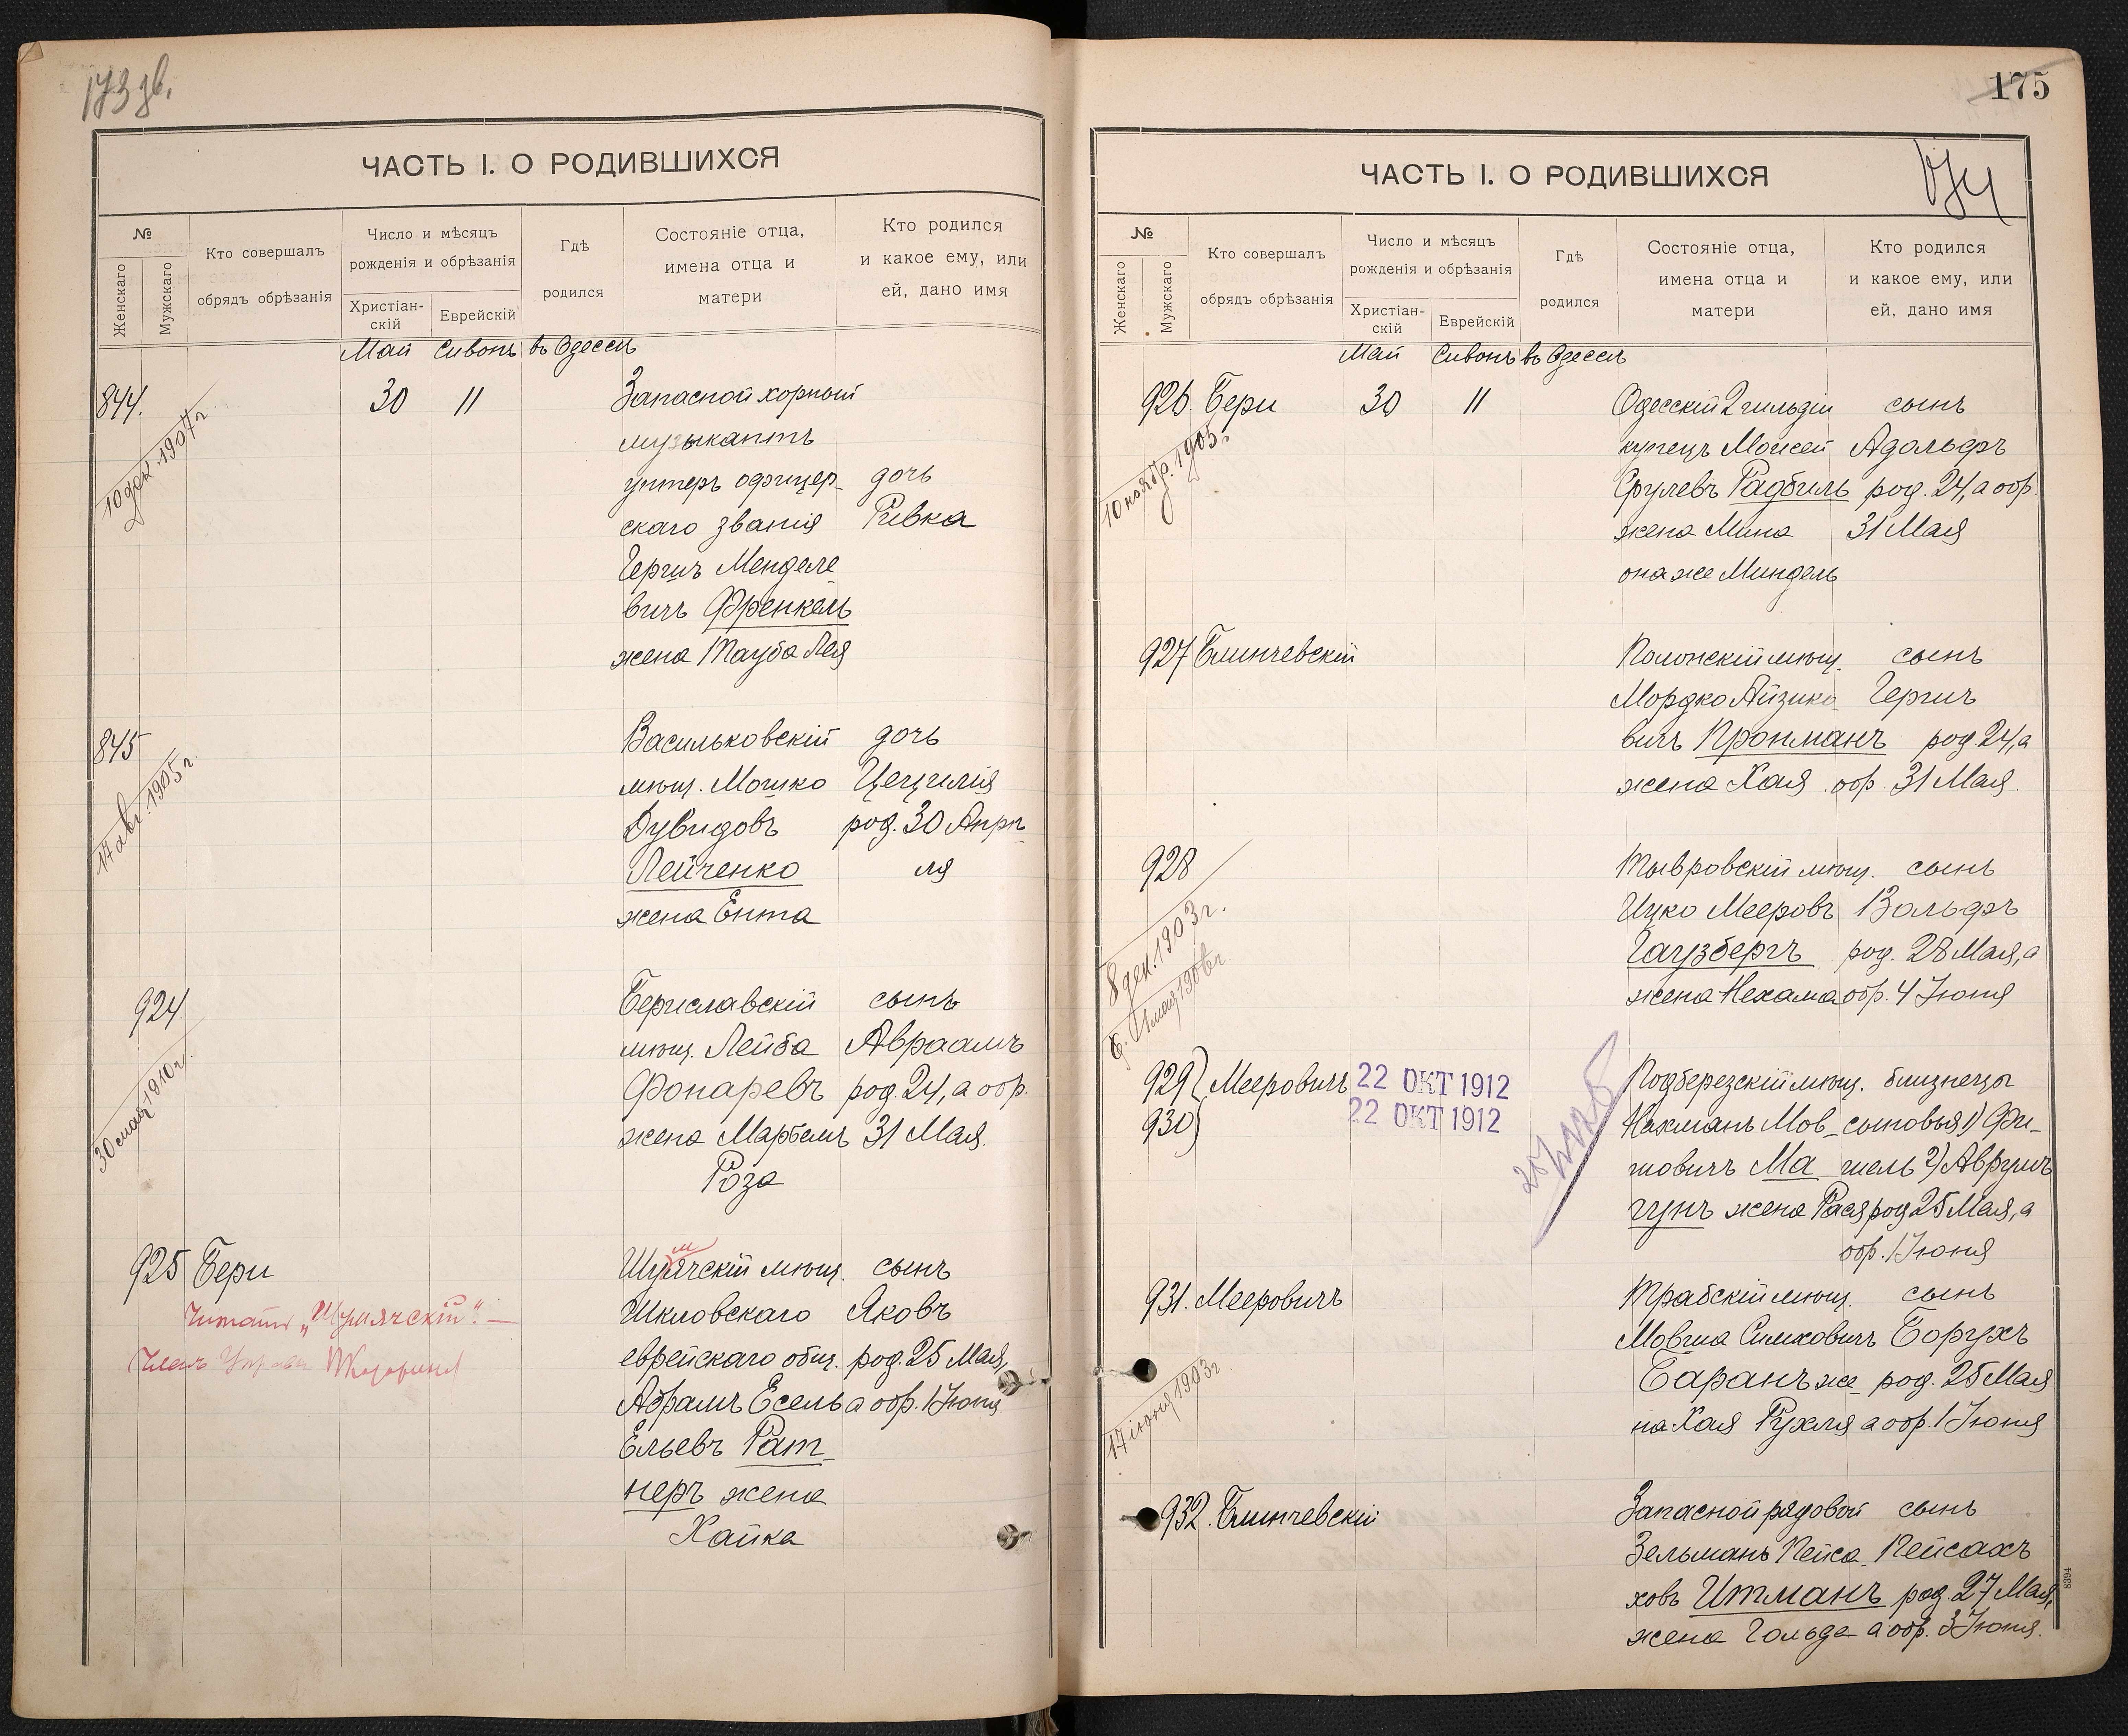 173 зв.
ЧАСТЬ I. О РОДИВШИХСЯ
№
Женскаго
Мужскаго
Кто совершалъ
обрядъ обрѣзанія
Число и мѣсяцъ
рожденія и обрѣзанія
Христіан-
скій
Еврейскій
Гдѣ
родился
Состояніе отца,
имена отца и
матери
Кто родился
и какое ему, или
ей, дано имя
Май Сивонъ въ Одессѣ
844. 30 11 Запасной хорный
10 дек. 1907 г.
музыкантъ
унтеръ офицер- дочь
скаго званія Ривка
Гершъ Менделе-
вичъ Френкель
жена Тауба Лея
845 Васильковскій дочь
17 авг. 1905 г.
мѣщ. Мошко Цецилія
Дувидовъ род. 30 Апрѣ-
Лейченко ля
жена Ента
924. Бериславскій сынъ
30 мая 1910 г.
мѣщ. Лейба Авраамъ
Фонаревъ род. 24, а обр.
жена Марбель 31 Мая.
Роза
925 Бери Шумячскій мѣщ. сынъ
Читать „Шумячскій“. —
Шкловскаго Яковъ
Членъ Управы
еврейскаго общ. род. 25 Мая,
Абрамъ Есель а обр. 1 Іюня
Ельевъ Рат-
неръ жена
Хайка
175
174
ЧАСТЬ I. О РОДИВШИХСЯ
№
Женскаго
Мужскаго
Кто совершалъ
обрядъ обрѣзанія
Число и мѣсяцъ
рожденія и обрѣзанія
Христіан-
скій
Еврейскій
Гдѣ
родился
Состояніе отца,
имена отца и
матери
Кто родился
и какое ему, или
ей, дано имя
Май Сивонъ въ Одессѣ
926. Бери 30 11 Одесскій 2 гильдіи сынъ
10 ноябр. 1905 г.
купецъ Моисей Адольфъ
Срулевъ Радбиль род. 24, а обр.
жена Мина 31 Мая
она же Миндель
927 Блинчевскій Полонскій мѣщ. сынъ
Мордко Айзико- Гершъ
вичъ Кропманъ род. 24, а
жена Хая обр. 31 Мая.
928 Тывровскій мѣщ. сынъ
8 дек. 1903 г.
Ицко Мееровъ Вольфъ
Гаузбергъ род. 28 Мая, а
жена Нехама обр. 4 Іюня
929 Мееровичъ 22 ОКТ 1912 Подберезскій мѣщ. близнецы
930 22 ОКТ 1912 Нахманъ Мов- сыновья 1) Фи-
шовичъ Ма- шель 2) Аврумъ
гунъ жена Рася род 25 Мая, а
обр. 1 Іюня
931. Мееровичъ Трабскій мѣщ. сынъ
17 іюня 1903 г.
Мовша Симховичъ Борухъ
Баранъ же- род. 25 Мая
на Хая Рухля а обр. 1 Іюня
932. Блинчевскій Запасной рядовой сынъ
Зельманъ Пейса- Пейсахъ
ховъ Итманъ род. 27 Мая,
жена Гольда а обр. 3 Іюня.
8394